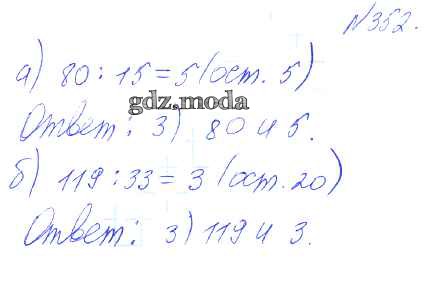 №352.
а) 80 : 15 = 5 (ост. 5)
gdz.moda
Ответ: 3) 80 и 5.
б) 119 : 33 = 3 (ост. 20)
Ответ: 3) 119 и 3.